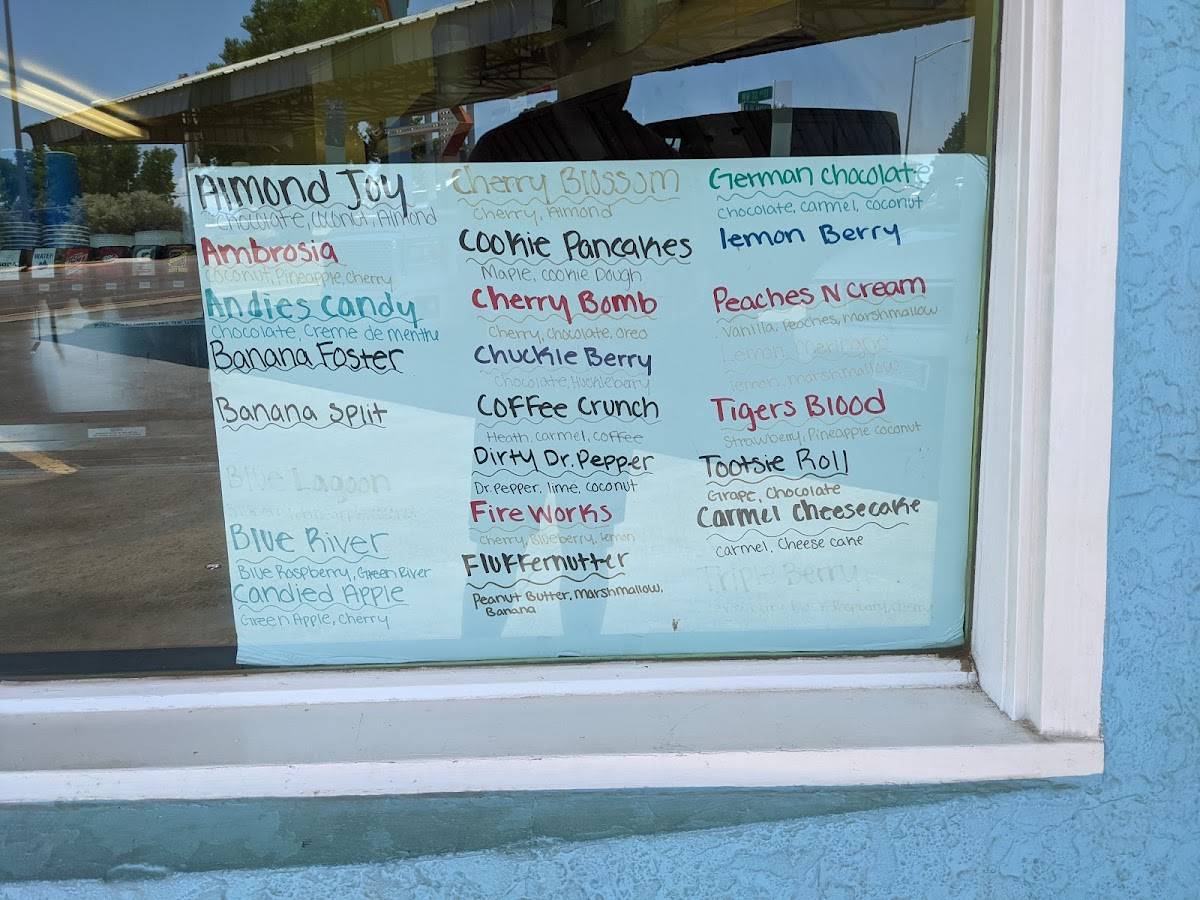 Almond Joy
chocolate, coconut, Almond
Ambrosia
coconut, Pineapple, cherry
Andies candy
chocolate, Creme de menthe
Banana Foster
Banana Split
Blue Lagoon
Blue River
Blue Raspberry, Green River
Candied Apple
Green Apple, cherry
Cherry Blossom
cherry, Almond
Cookie Pancakes
Maple, cookie Dough
Cherry Bomb
cherry, chocolate, oreo
Chuckle Berry
chocolate, Huckleberry
Coffee Crunch
Heath, carmel, coffee
Dirty Dr. Pepper
Dr. pepper, lime, coconut
Fire Works
cherry, Blueberry, lemon
Fluffernutter
Peanut Butter, marshmallow,
Banana
German chocolate
chocolate, carmel, coconut
lemon Berry
Peaches N Cream
Vanilla, Peaches, marshmallow
Lemon
lemon, marshmallow
Tigers Blood
Strawberry, Pineapple coconut
Tootsie Roll
Grape, Chocolate
Carmel Cheesecake
carmel, Cheese cake
Triple Berry
WATER